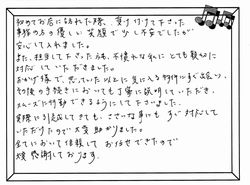 初めてお店に訪れた際、受け付けて下さった
事務の方の優しい笑顔で少し不安でしたが
安心して入れました。
また、担当して下さった方も、不慣れな私に とても親切に
対応して いただきました。
おかげ様で、思っていた以上に気に入る物件にすぐ出会い、
その後の手続きにおいても丁寧に説明していただき、
スムーズに行動できるようにして下さいました。
実際に引越してきても、ささいな事にも すぐ対応して
いただけたので大変助かりました。
全てにおいて信頼して お任せできたので
大変感謝しております。